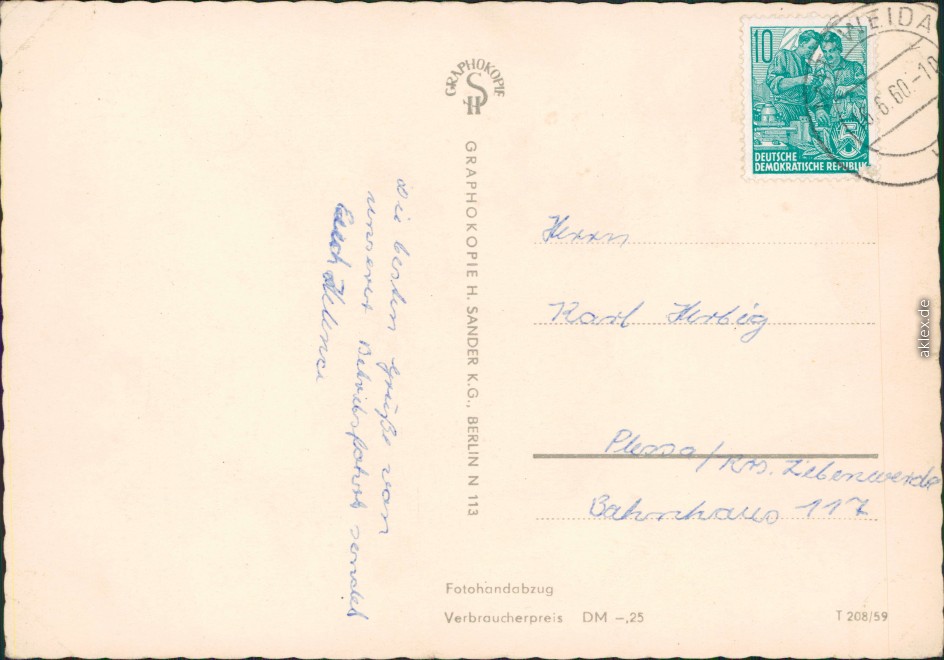 Die besten Grüße von
unserer Betriebsfahrt sendet
Euch Helene
GRAPHOKOPIE
H S
GRAPHOKOPIE H. SANDER K.G., BERLIN N 113
10
5
DEUTSCHE
DEMOKRATISCHE REPUBLIK
WEIDA
6.6.60.-10
Herrn
Karl Herbig
Plessa/Krs. Liebenwerda
Bahnhaus 117
Fotohandabzug
Verbraucherpreis DM -,25
T 208/59
aklex.de